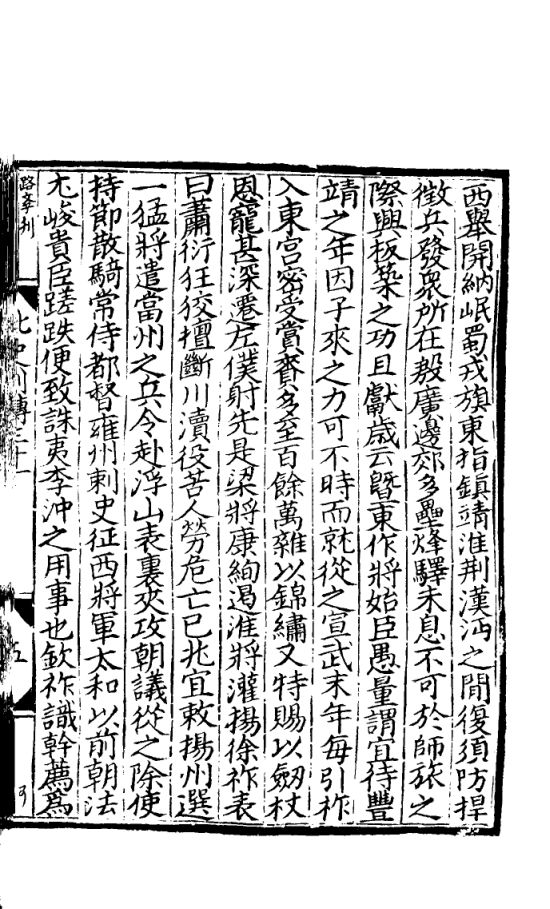 西舉開納岷蜀戎旗東指鎮靖淮荆漢沔之間復須防捍
徵兵發衆所在殷廣邊郊多壘烽驛未息不可於師旅之
際興板築之功且獻歲云曁東作將始臣愚量謂宜待豐
靖之年因子來之力可不時而就從之宣武末年每引祚
入東宮密受賞賚多至百餘萬雜以錦繡又特賜以劔杖
恩寵甚深遷左僕射先是梁將康絢遏淮將灌揚徐祚表
曰蕭衍狂狡擅斷川瀆役苦人勞危亡已兆宜敕揚州選
一猛將遣當州之兵令赴浮山表裏夾攻朝議從之除使
持節散騎常侍都督雍州刺史征西將軍太和以前朝法
尤峻貴臣蹉跌便致誅夷李沖之用事也欽祚識幹薦爲
北史列傳三十一
五